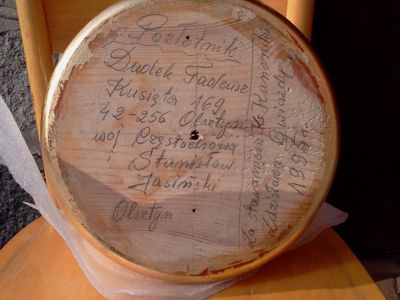 Pozłotnik
Dudek Tadeusz
Kusięta 169
42-256 Olsztyn
woj Częstochowa
Stanisław
Jasiński
Olsztyn
Za Kanonika
1998 r.